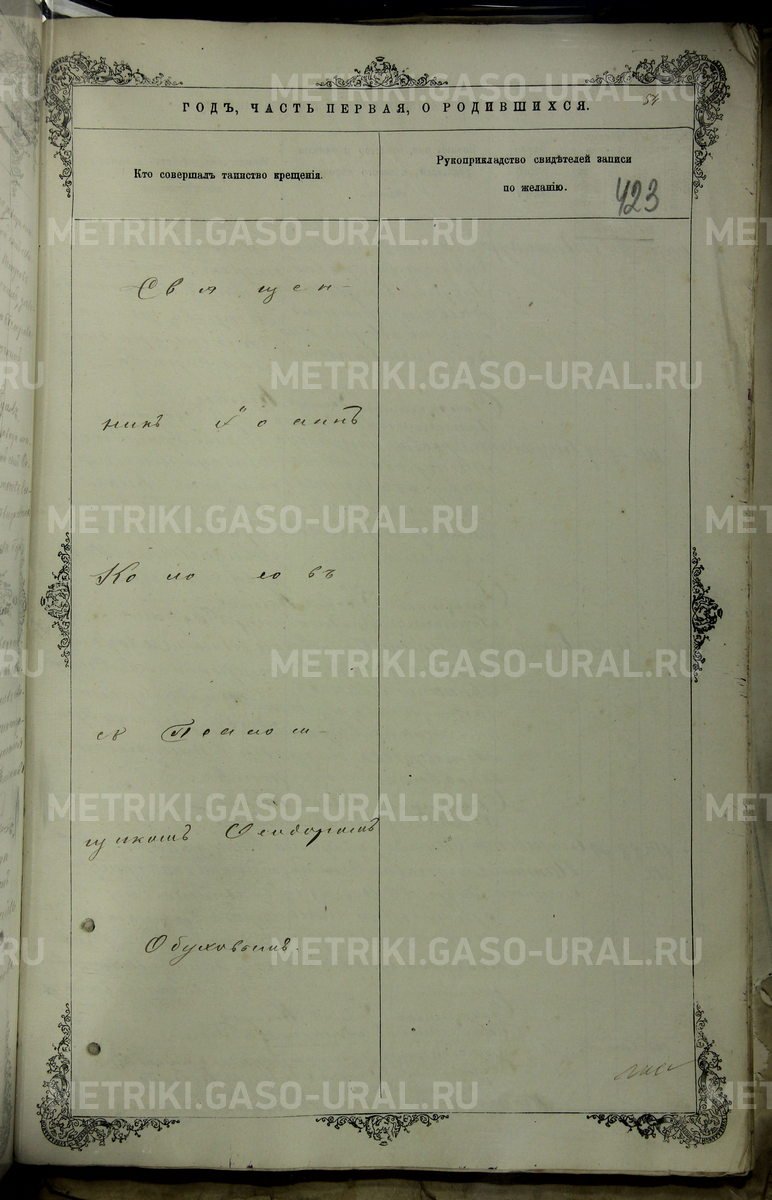 METRIKI.GASO-URAL.RU
54
ГОДЪ, ЧАСТЬ ПЕРВАЯ, О РОДИВШИХСЯ.
Кто совершалъ таинство крещенія.
Рукоприкладство свидѣтелей записи
по желанію.
423
METRIKI.GASO-URAL.RU
Священ-
METRIKI.GASO-URAL.RU
никъ Іоаннъ
METRIKI.GASO-URAL.RU
METRIKI.GASO-URAL.RU
съ Псалом-
METRIKI.GASO-URAL.RU
щикомъ Ѳеодоромъ
METRIKI.GASO-URAL.RU
Обуховымъ.
METRIKI.GASO-URAL.RU